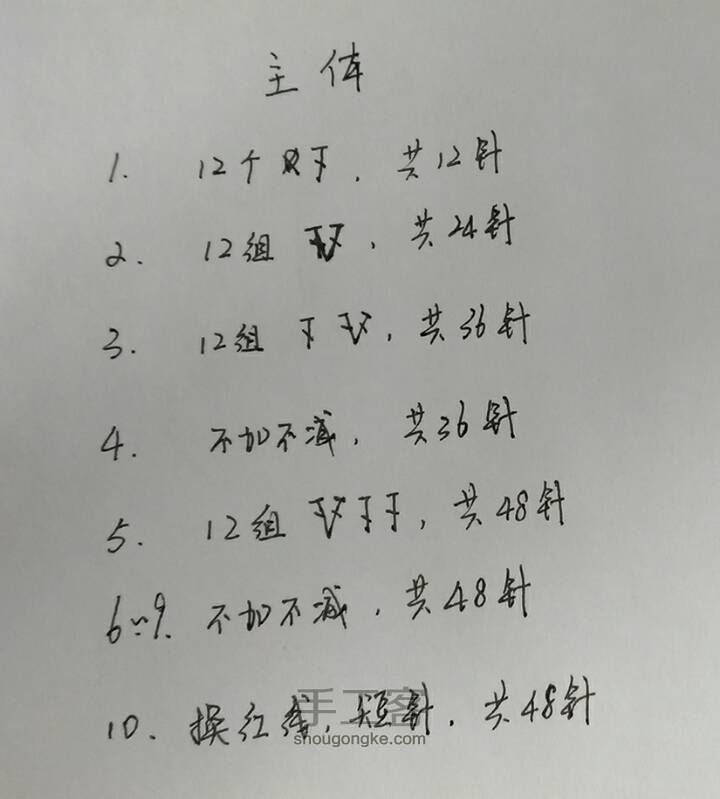 主体
1. 12个 ㄒ, 共12针
2. 12组 , 共24针
3. 12组 , 共36针
4. 不加不减, 共36针
5. 12组 , 共48针
6~9. 不加不减, 共48针
10. 换红线, 短针, 共48针
手工客
shougongke.com